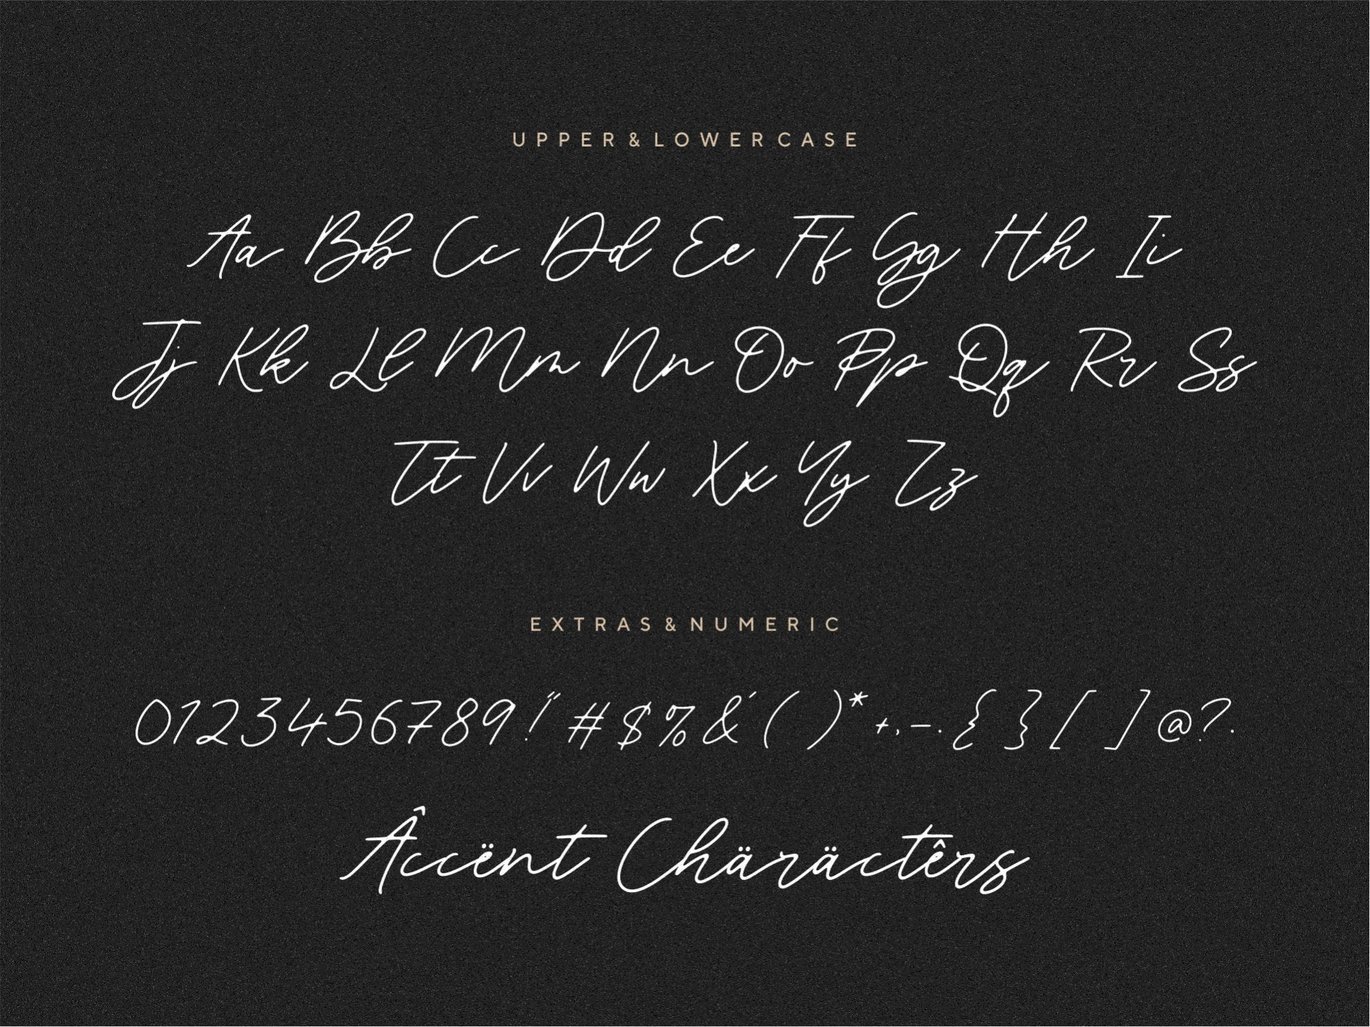 UPPER & LOWERCASE
Aa Bb Cc Dd Ee Ff Gg Hh Ii
Jj Kk Ll Mm Nn Oo Pp Qq Rr Ss
Tt Vv Ww Xx Yy Zz
EXTRAS & NUMERIC
0123456789!"#$%&'()*+,-.{}[]@?.
Âccënt Chäräctêrs